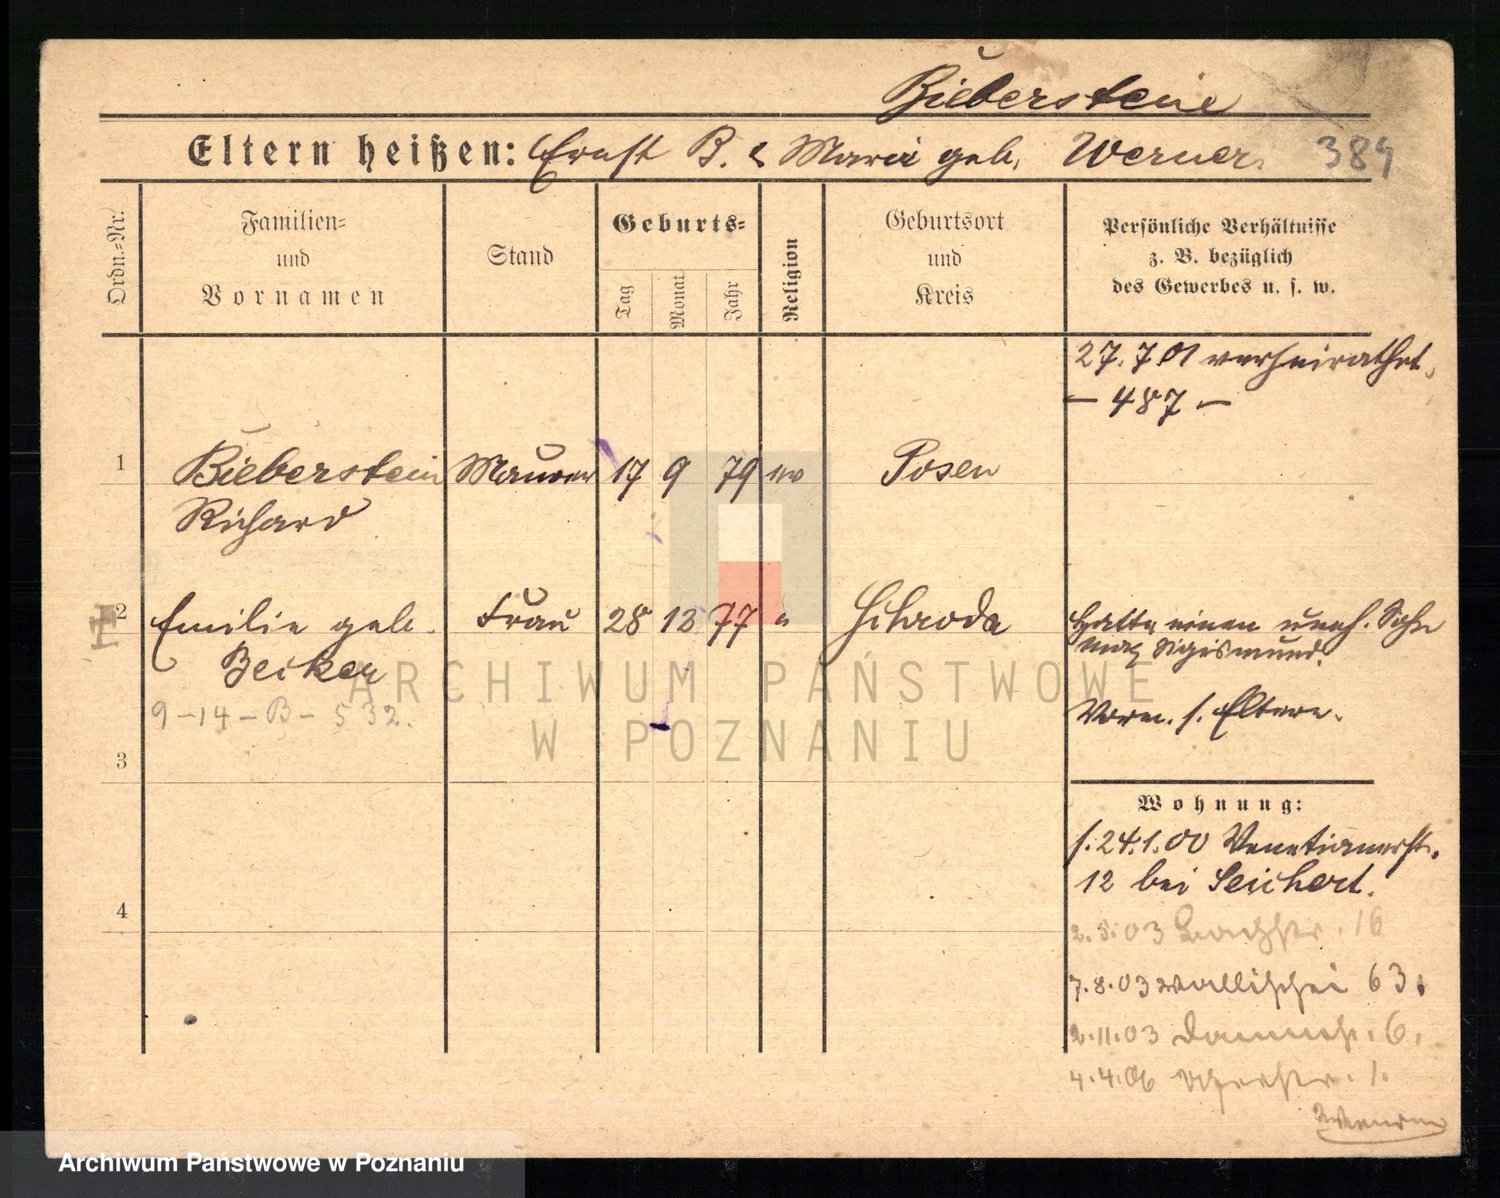 Bieberstein
Eltern heißen: Ernst B. & Maria geb. Werner. 389
Ordn.=Nr.
Familien=
und
Vornamen
Stand
Geburts=
Tag
Monat
Jahr
Religion
Geburtsort
und
Kreis
Persönliche Verhältnisse
z. B. bezüglich
des Gewerbes u. s. w.
27. 7 01 verheirathet.
– 487 –
1 Bieberstein Maurer 17 9 79 ev Posen
Richard
2 Emilie geb. Frau 28 12 77 "
Becker
9-14-B-532.
Hatte einen uneh. Sohn
Max Sigismund.
Vorm. s. Eltern.
3
Wohnung:
s. 24.1.00 Venetianerstr.
12 bei Seichert.
4
2.5.03 16
7.8.03 Wallischei 63.
2.11.03 Dammstr. 6.
4.4.06 1.
ARCHIWUM PAŃSTWOWE
W POZNANIU
Archiwum Państwowe w Poznaniu